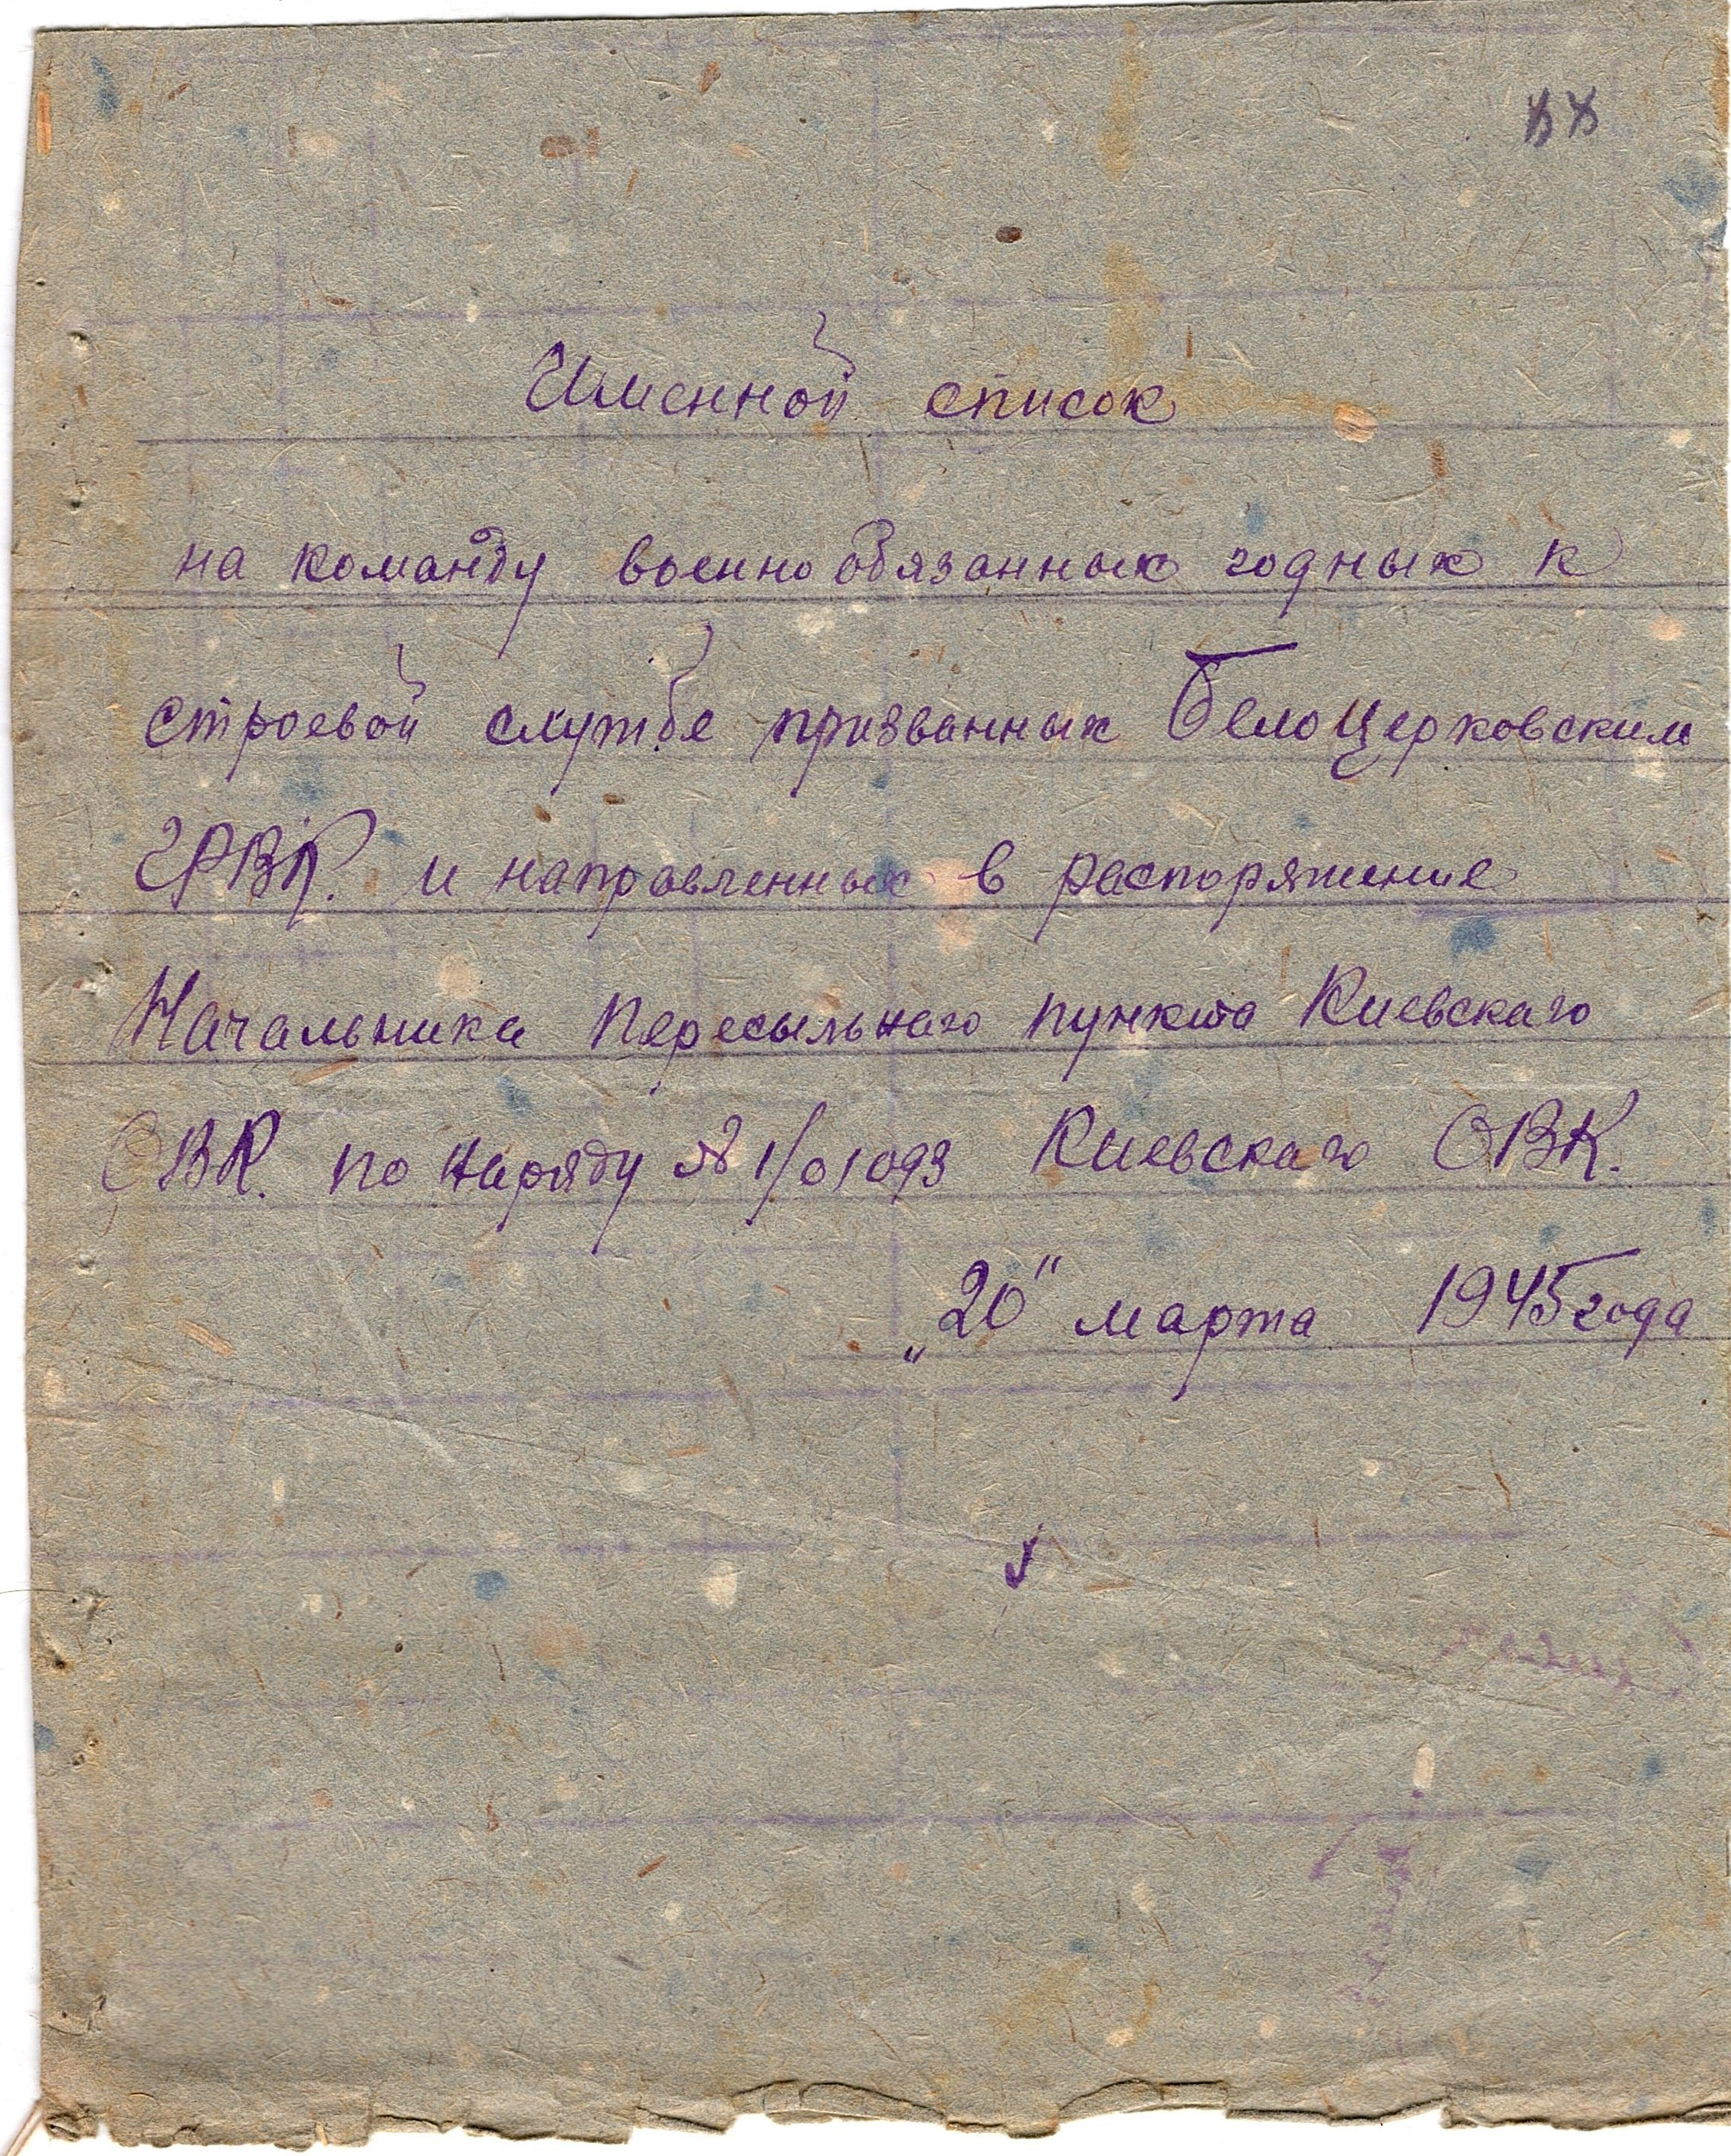 Именной список
на команду военнообязанных годных к
строевой службе призванных Белоцерковским
ГРВК. и направленных в распоряжение
Начальника Пересыльнаго пункта Киевскаго
ОВК. по наряду № 1/01093 Киевскаго ОВК.
„20" марта 1945 года